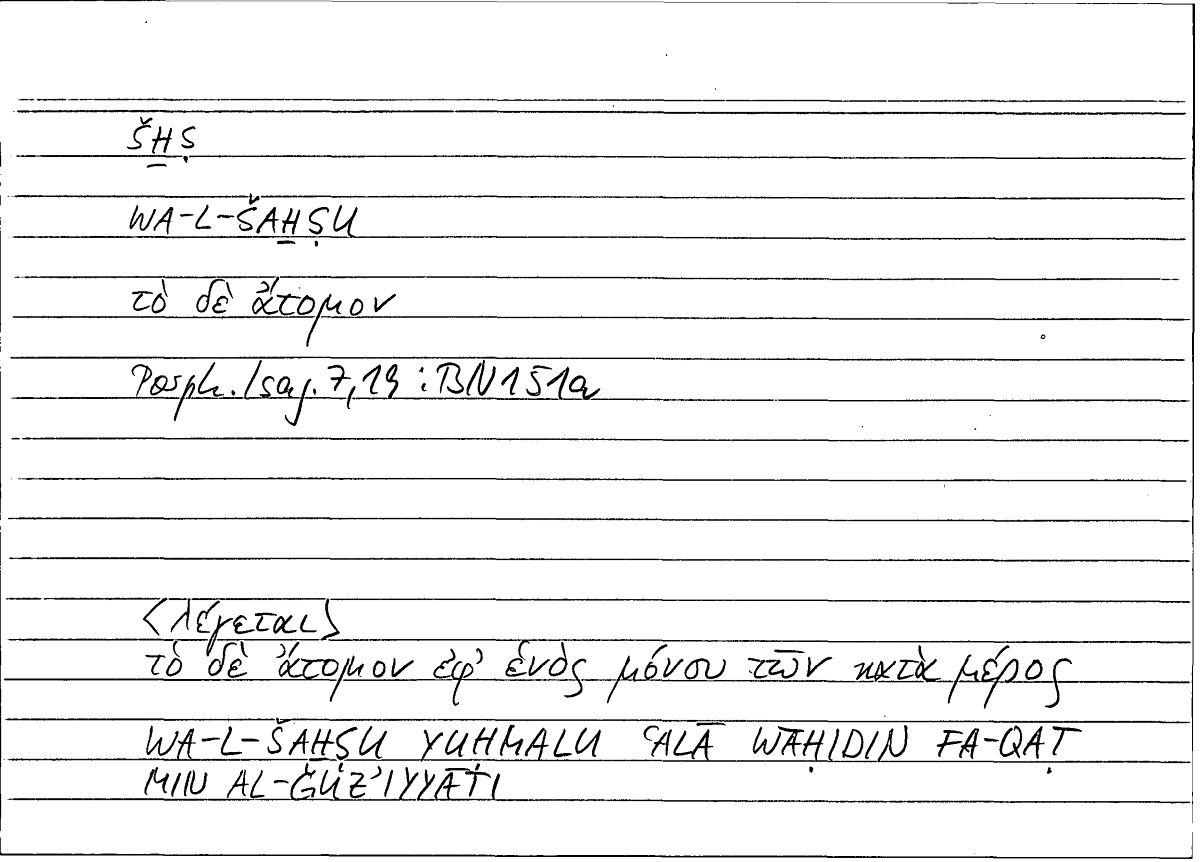 ŠH̱Ṣ
WA-L-ŠAH̱ṢU
τὸ δὲ ἄτομον
Porph. Isag. 7,19 : BN151a
⟨λέγεται⟩
τὸ δὲ ἄτομον ἐφ' ἑνὸς μόνου τῶν κατὰ μέρος
WA-L-ŠAH̱ṢU YUḤMALU ʿALĀ WĀḤIDIN FA-QAṬ
MIN AL-ĞUZʾIYYĀTI